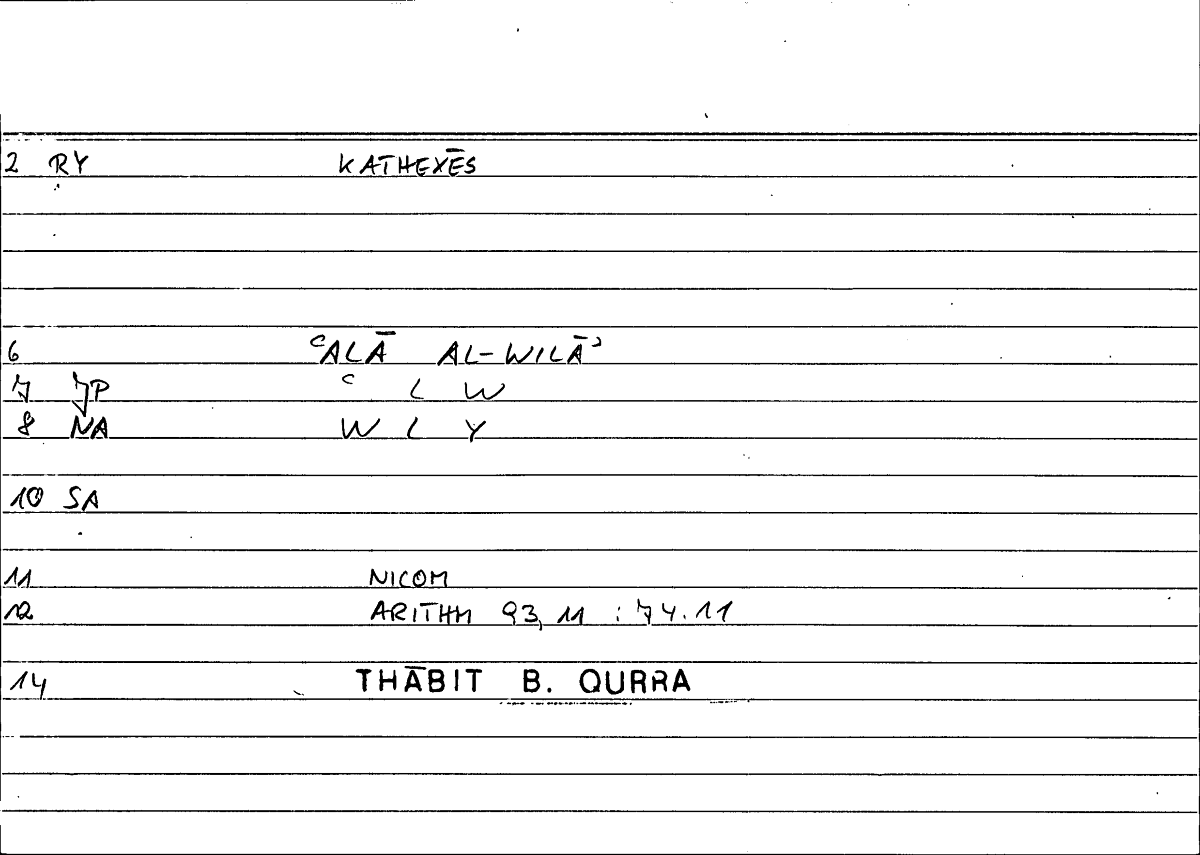 2 RY KATHEXĒS
6 ʿALĀ AL-WILĀʾ
7 JP ʿ L W
8 NA W L Y
10 SA
11 NICOM
12 ARITHM 93,11 : 74.11
14 THĀBIT B. QURRA